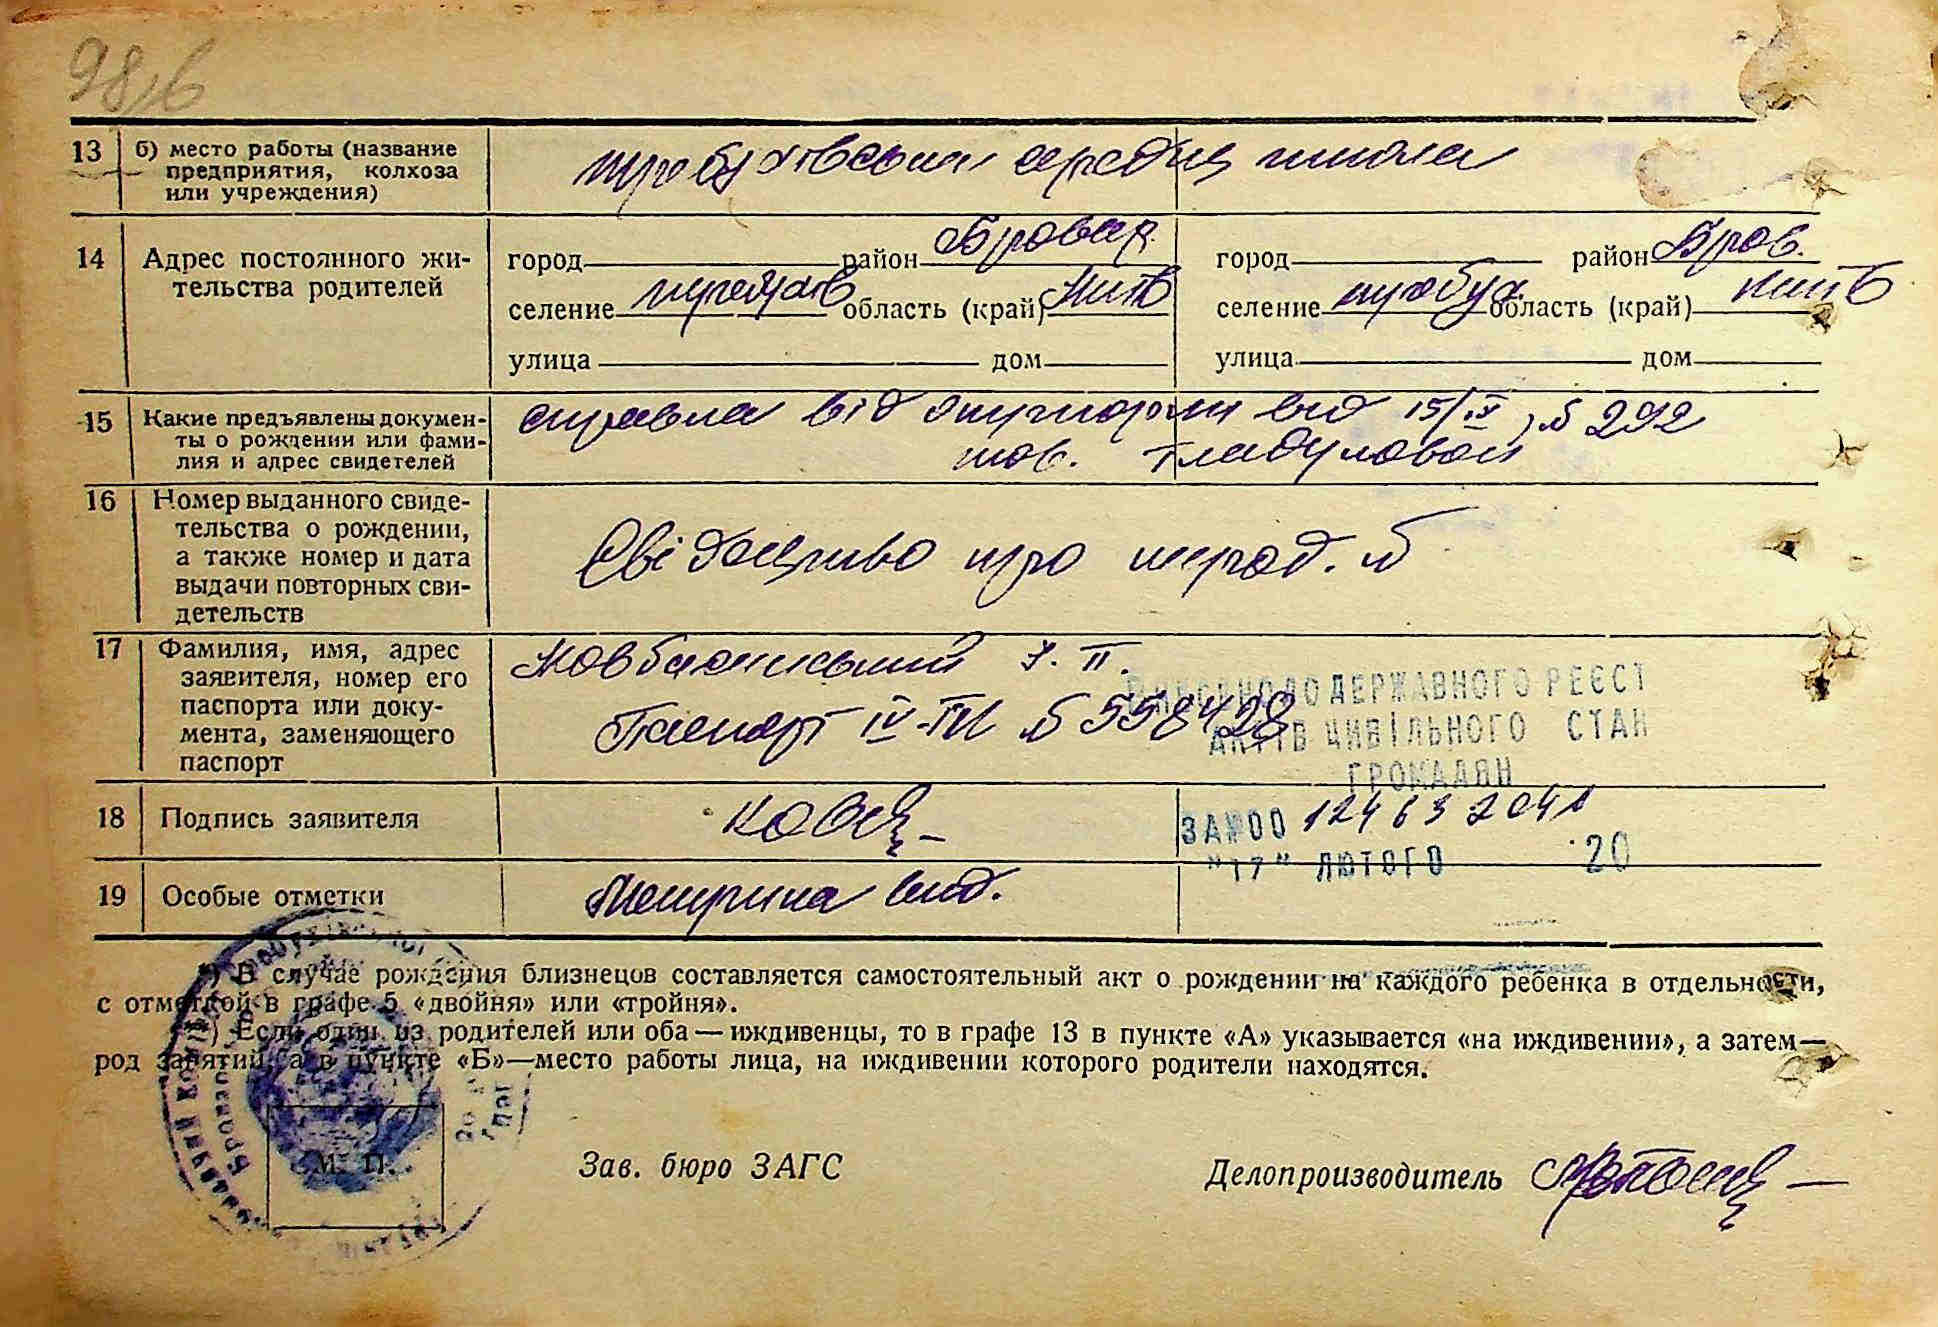 13 б) место работы (название
предприятия, колхоза
или учреждения)
середня школа
14 Адрес постоянного жи-
тельства родителей
город район Бровар. город район Бров.
селение область (край) Київ селение требух. область (край) Київ
улица дом улица дом
15 Какие предъявлены докумен-
ты о рождении или фами-
лия и адрес свидетелей
справка від від 15/IV № 292
тов.
16 Номер выданного свиде-
тельства о рождении,
а также номер и дата
выдачи повторных сви-
детельств
Свідоцтво про народ. №
17 Фамилия, имя, адрес
заявителя, номер его
паспорта или доку-
мента, заменяющего
паспорт
Паспорт № 558428
ДЕРЖАВНОГО РЕЄСТ
АКТІВ ЦИВІЛЬНОГО СТАН
ГРОМАДЯН
18 Подпись заявителя
ЗА №00 124 63 204
"17" ЛЮТОГО 20
19 Особые отметки
Материна вид.
*) В случае рождения близнецов составляется самостоятельный акт о рождении на каждого ребенка в отдельности,
с отметкой в графе 5 «двойня» или «тройня».
Если один из родителей или оба — иждивенцы, то в графе 13 в пункте «А» указывается «на иждивении», а затем—
род занятий, а в пункте «Б»—место работы лица, на иждивении которого родители находятся.
М. П.
Зав. бюро ЗАГС
Делопроизводитель